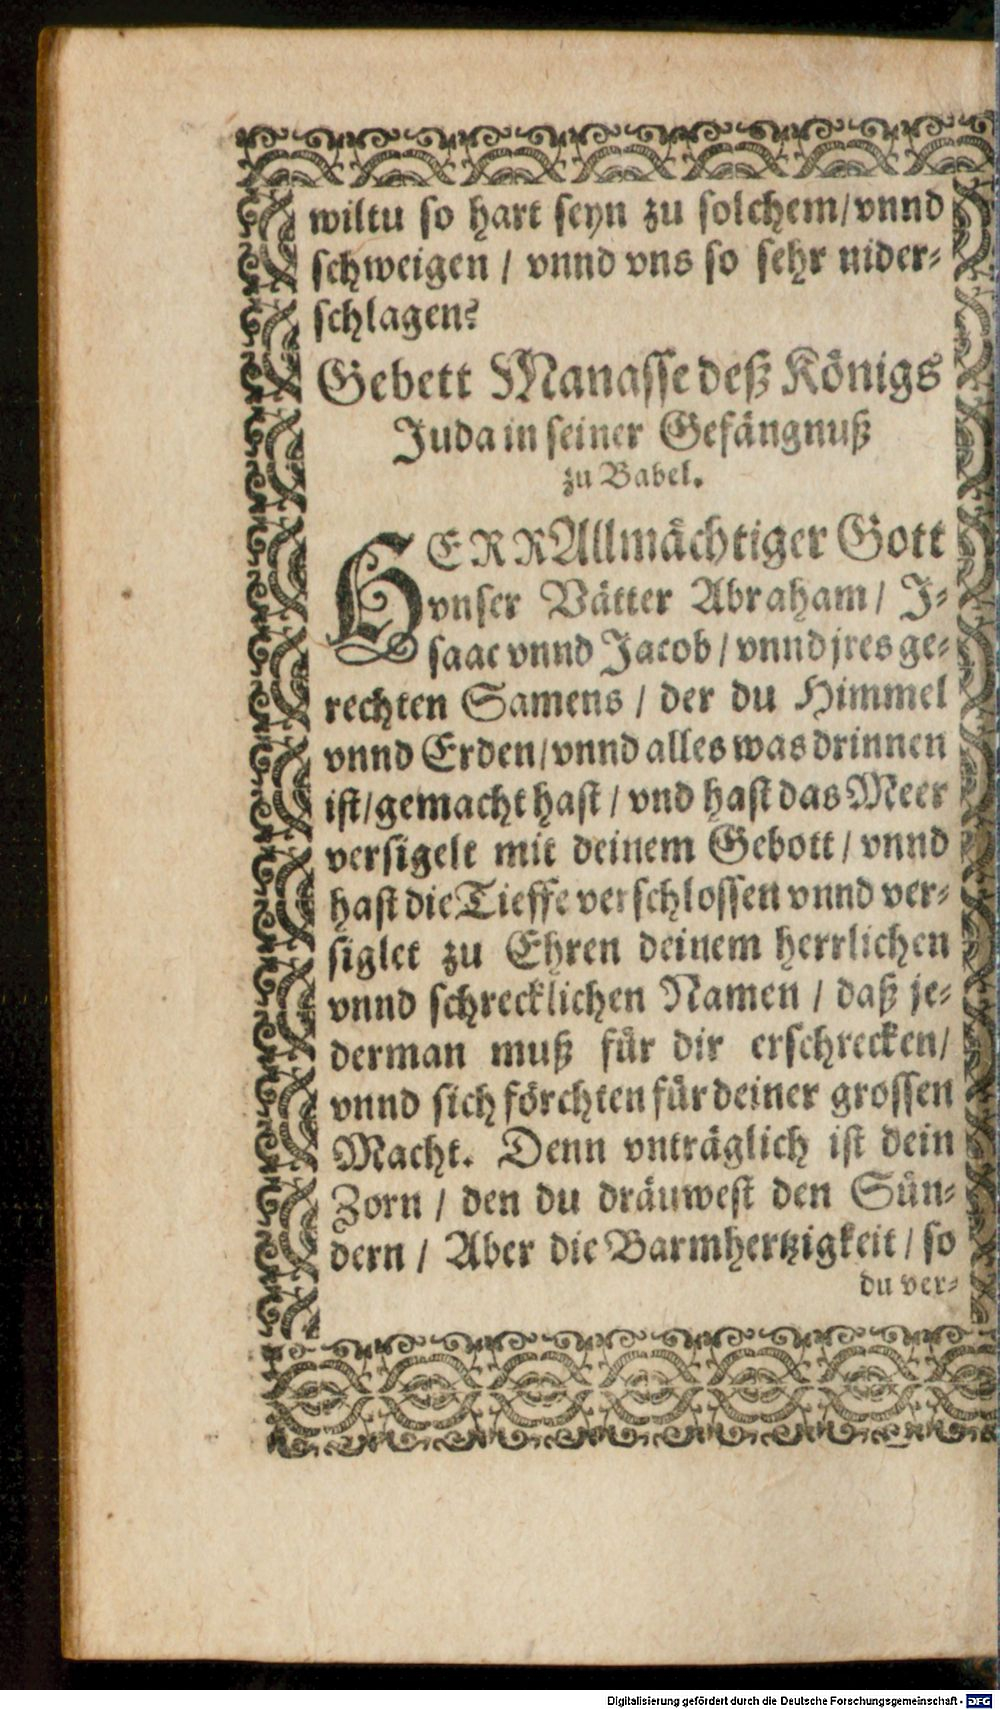 wiltu so hart seyn zu solchem/vnnd
schweigen / vnnd vns so sehr nider-
schlagen?
Gebett Manasse deß Königs
Juda in seiner Gefängnuß
zu Babel.
HERR Allmächtiger Gott
vnser Vätter Abraham / J-
saac vnnd Jacob / vnnd jres ge-
rechten Samens / der du Himmel
vnnd Erden/vnnd alles was drinnen
ist/gemacht hast / vnd hast das Meer
versigelt mit deinem Gebott / vnnd
hast die Tieffe verschlossen vnnd ver-
siglet zu Ehren deinem herrlichen
vnnd schrecklichen Namen / daß je-
derman muß für dir erschrecken/
vnnd sich förchten für deiner grossen
Macht. Denn vnträglich ist dein
Zorn / den du dräuwest den Sün-
dern / Aber die Barmhertzigkeit / so
du ver-
Digitalisierung gefördert durch die Deutsche Forschungsgemeinschaft - DFG